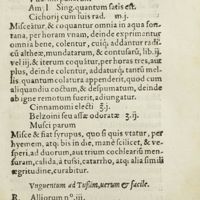 Am⌊⌊ Sing. quantum satis est.
Cichorij cum suis rad. m.j.
Misceātur, & coquantur omnia in aqua fon-
tana, per horam vnam, deinde exprimantur
omnia bene, colentur, cuiq; addantur radi-
cū althææ, mundatarum, & contusarū, lib. ij.
vel iij. & iterum coquātur, per horas tres, aut
plus, deinde colentur, addaturq; tantū mel-
lis quantum colatura appenderit, quod cum
aliquandiu coctum, & despumatum, deinde
ab igne remotum fuerit, adijungatur.
Cinnamomi electi ℥.j.
Belzoini seu assæ odoratæ ʒ.ij.
Musci parum
Misce & fiat syrupus, quo si quis vtatur, per
hyemem, atq. bis in die, manè scilicet, & ve-
speri, ad duorum, aut trium cochlearis men-
suram, calida, à tussi, catarrho, atq. alia simili
ægritudine, curabitur.
Vnguentum ad Tussim, uerum & facile.
R. Alliorum n°. iij.